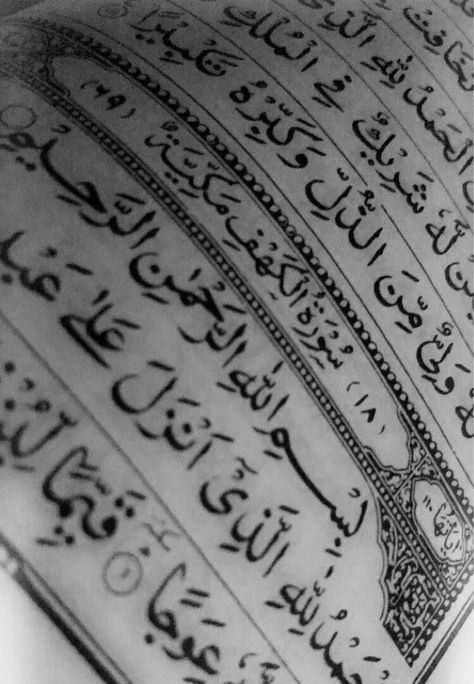 تخافت
الحمد لله الذي
لَّهٗ شَرِيْكٌ فِي الْمُلْكِ
لَهٗ وَلِيٌّ مِّنَ الذُّلِّ وَكَبِّرْهُ تَكْبِيْرًا
(١٨) سُوْرَةُ الْكَهْفِ مَكِّيَّةٌ (٦٩)
بِسْمِ اللهِ الرَّحْمٰنِ الرَّحِيْمِ
اَلْحَمْدُ لِلّٰهِ الَّذِيْٓ اَنْزَلَ عَلٰى عَبْدِ
عِوَجًا ١ قَيِّمًا لِّيُنْذِ